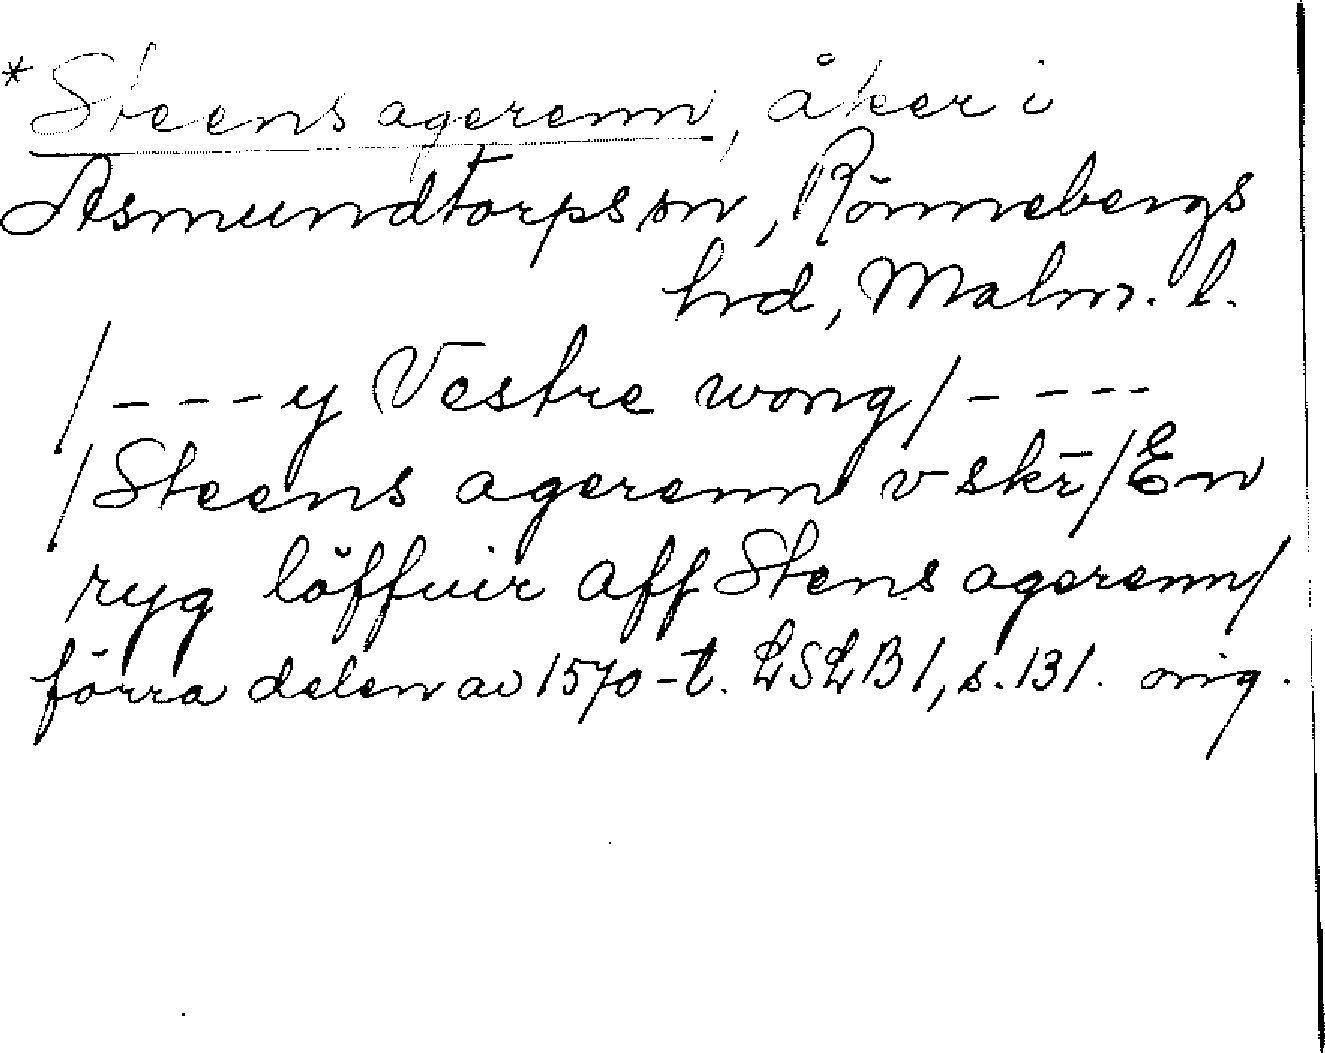 *Steens agerenn, åker i
Asmundtorps sn, Rönnebergs
hrd, Malm. l.
/ - - - y Vestre wong / - - - -
/ Steens agerenn v skr̄ / En
ryg löffuir aff Stens agerenn /
förra delen av 1570-t. LSLB 1, s. 131. orig.